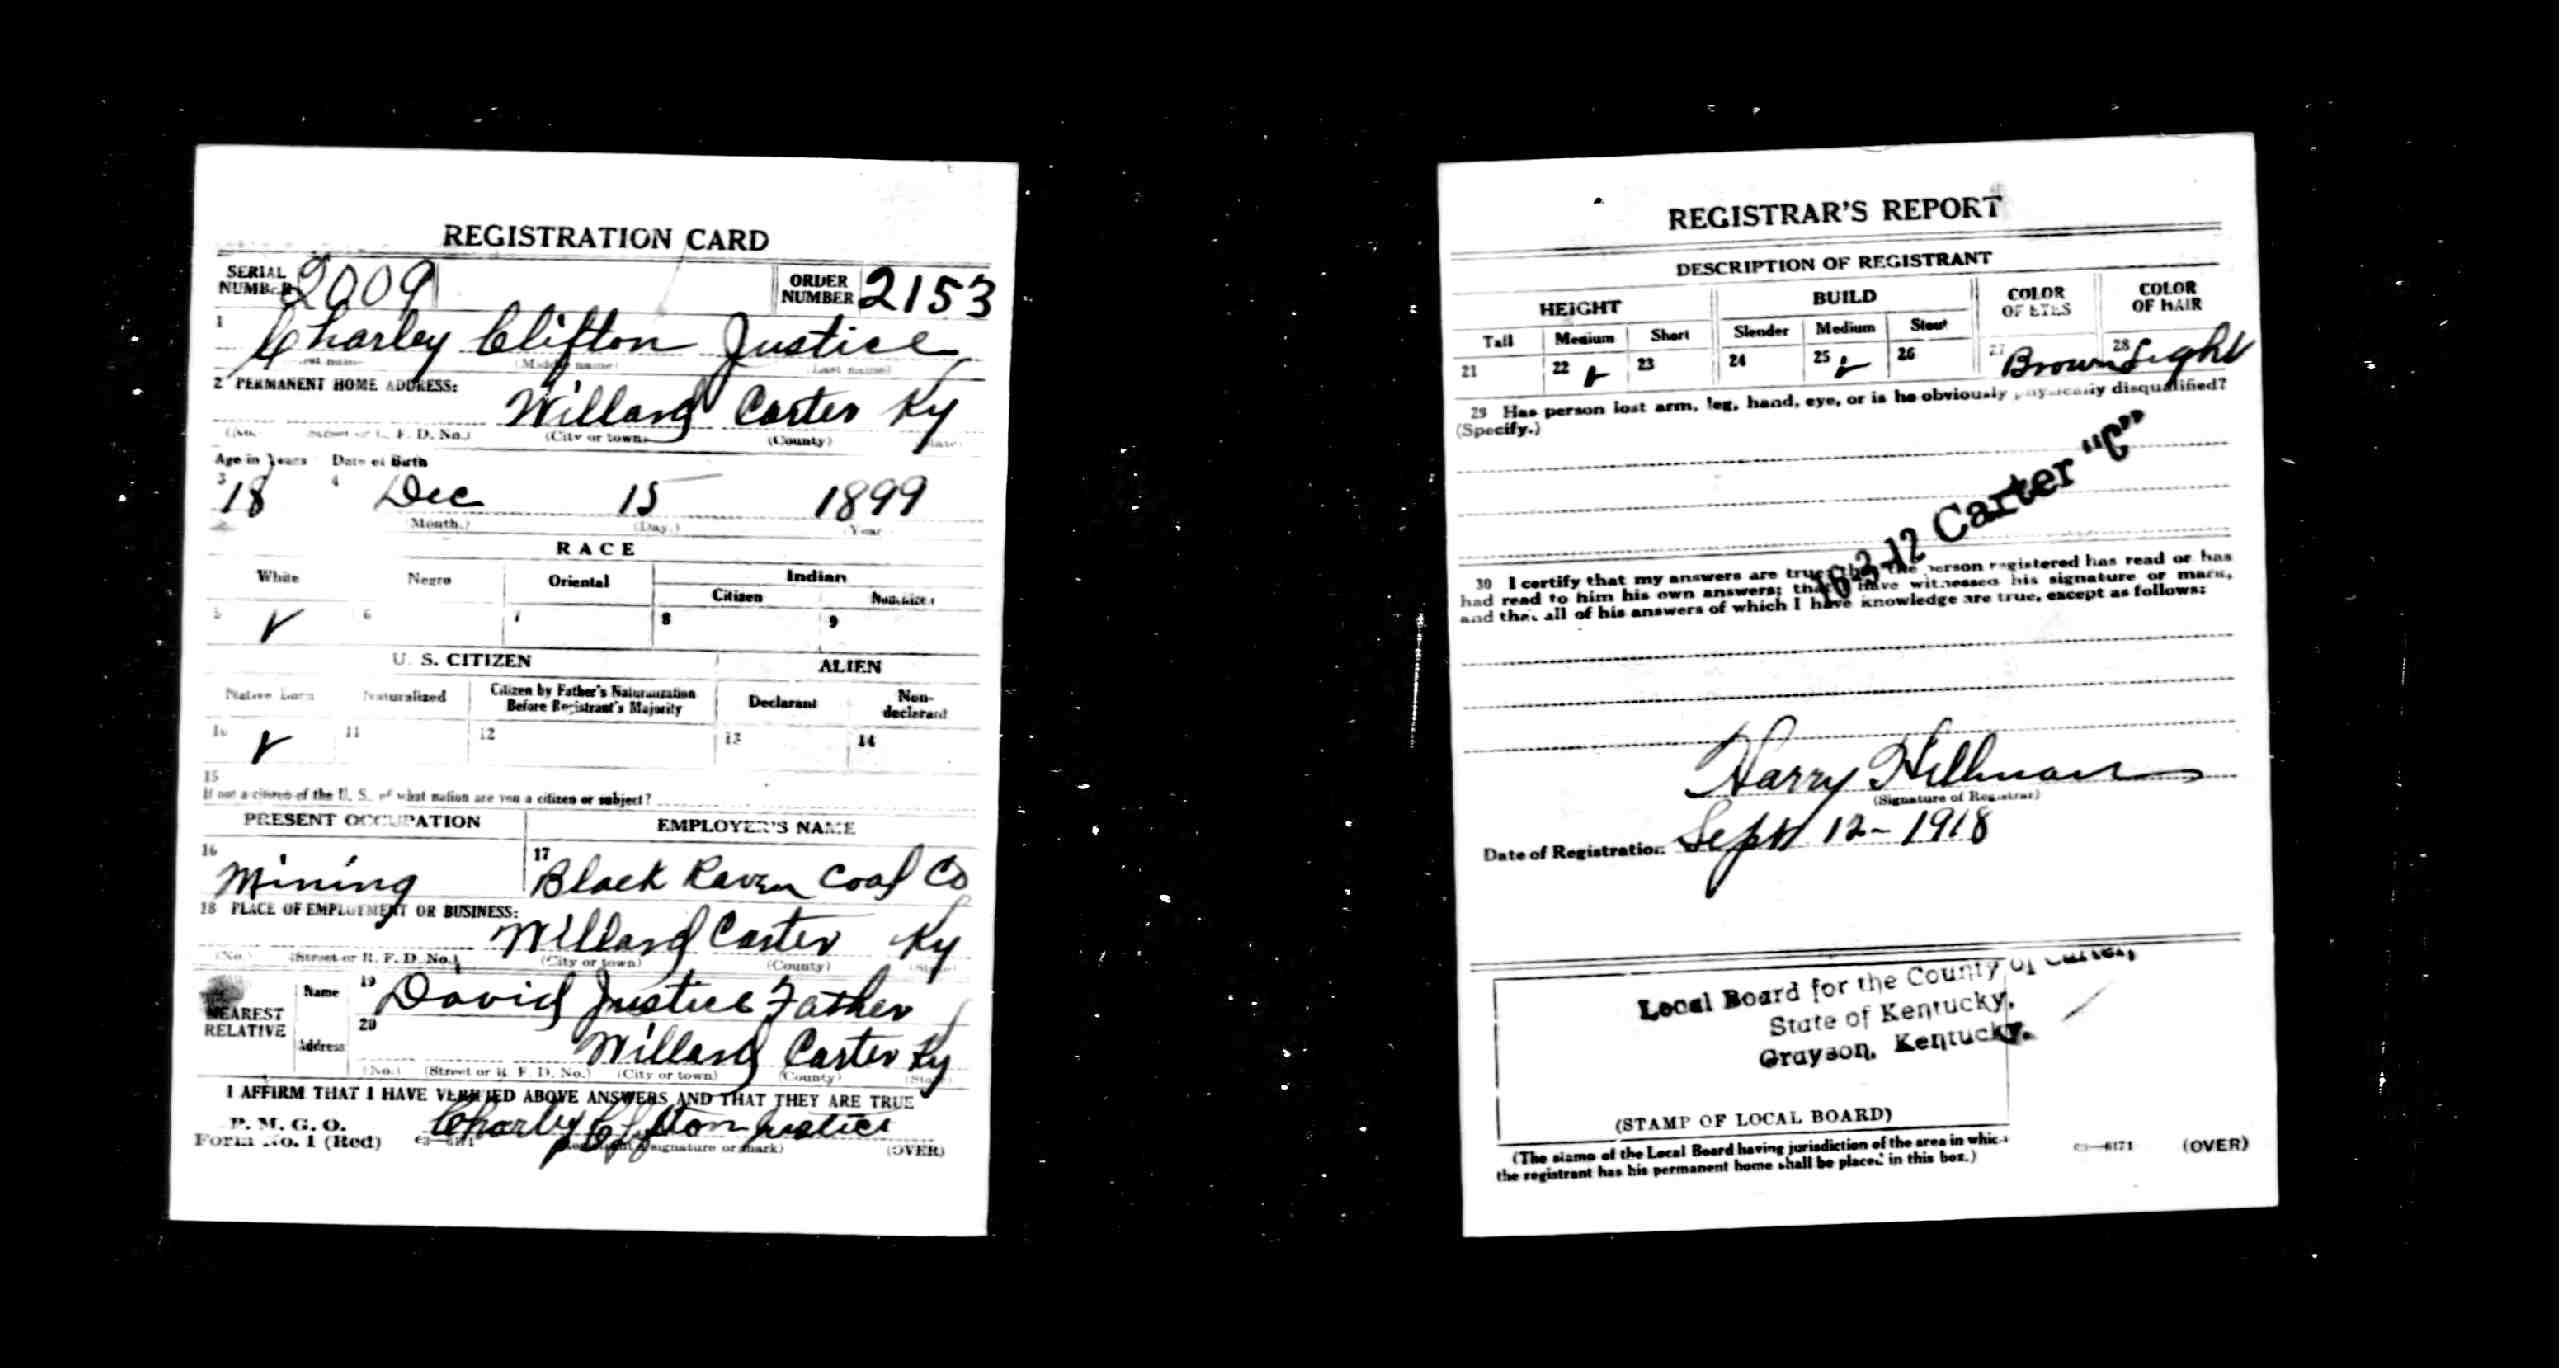 REGISTRATION CARD
SERIAL NUMBER 2009 ORDER NUMBER 2153
1 Charley Clifton Justice
(Middle name) (Last name)
2 PERMANENT HOME ADDRESS:
Willard Carter Ky
(No.) F. D. No.) (City or town) (County) (State)
Age in Years Date of Birth
3 18 4 Dec 15 1899
(Month.) (Day.) Year
RACE
White Negro Oriental Indian
Citizen Noncitizen
5 ✓ 6 7 8 9
U. S. CITIZEN ALIEN
Native Born Naturalized Citizen by Father's Naturalization Before Registrant's Majority Declarant Non-declarant
10 ✓ 11 12 13 14
15
If not a citizen of the U. S., of what nation are you a citizen or subject?
PRESENT OCCUPATION EMPLOYER'S NAME
16 Mining 17 Black Raven Coal Co
18 PLACE OF EMPLOYMENT OR BUSINESS:
Willard Carter Ky
(No.) (Street or R. F. D. No.) (City or town) (County) (State)
NEAREST RELATIVE Name 19 David Justice Father
Address 20 Willard Carter Ky
(No.) (Street or R. F. D. No.) (City or town) (County) (State)
I AFFIRM THAT I HAVE VERIFIED ABOVE ANSWERS AND THAT THEY ARE TRUE
P. M. G. O.
Form No. 1 (Red) Charley Clifton Justice
signature or mark) (OVER)
REGISTRAR'S REPORT
DESCRIPTION OF REGISTRANT
HEIGHT BUILD COLOR OF EYES COLOR OF HAIR
Tall Medium Short Slender Medium Stout
21 22 ✓ 23 24 25 ✓ 26 27 Brown 28 Light
29 Has person lost arm, leg, hand, eye, or is he obviously physically disqualified?
(Specify.)
16-3-12 Carter "C"
30 I certify that my answers are true; that the person registered has read or has
had read to him his own answers; that I have witnessed his signature or mark,
and that all of his answers of which I have knowledge are true, except as follows:
Harry Hillman
(Signature of Registrar)
Date of Registration Sept 12-1918
Local Board for the County of Carter,
State of Kentucky,
Grayson, Kentucky.
(STAMP OF LOCAL BOARD)
(The stamp of the Local Board having jurisdiction of the area in which
the registrant has his permanent home shall be placed in this box.)
03—6171 (OVER)